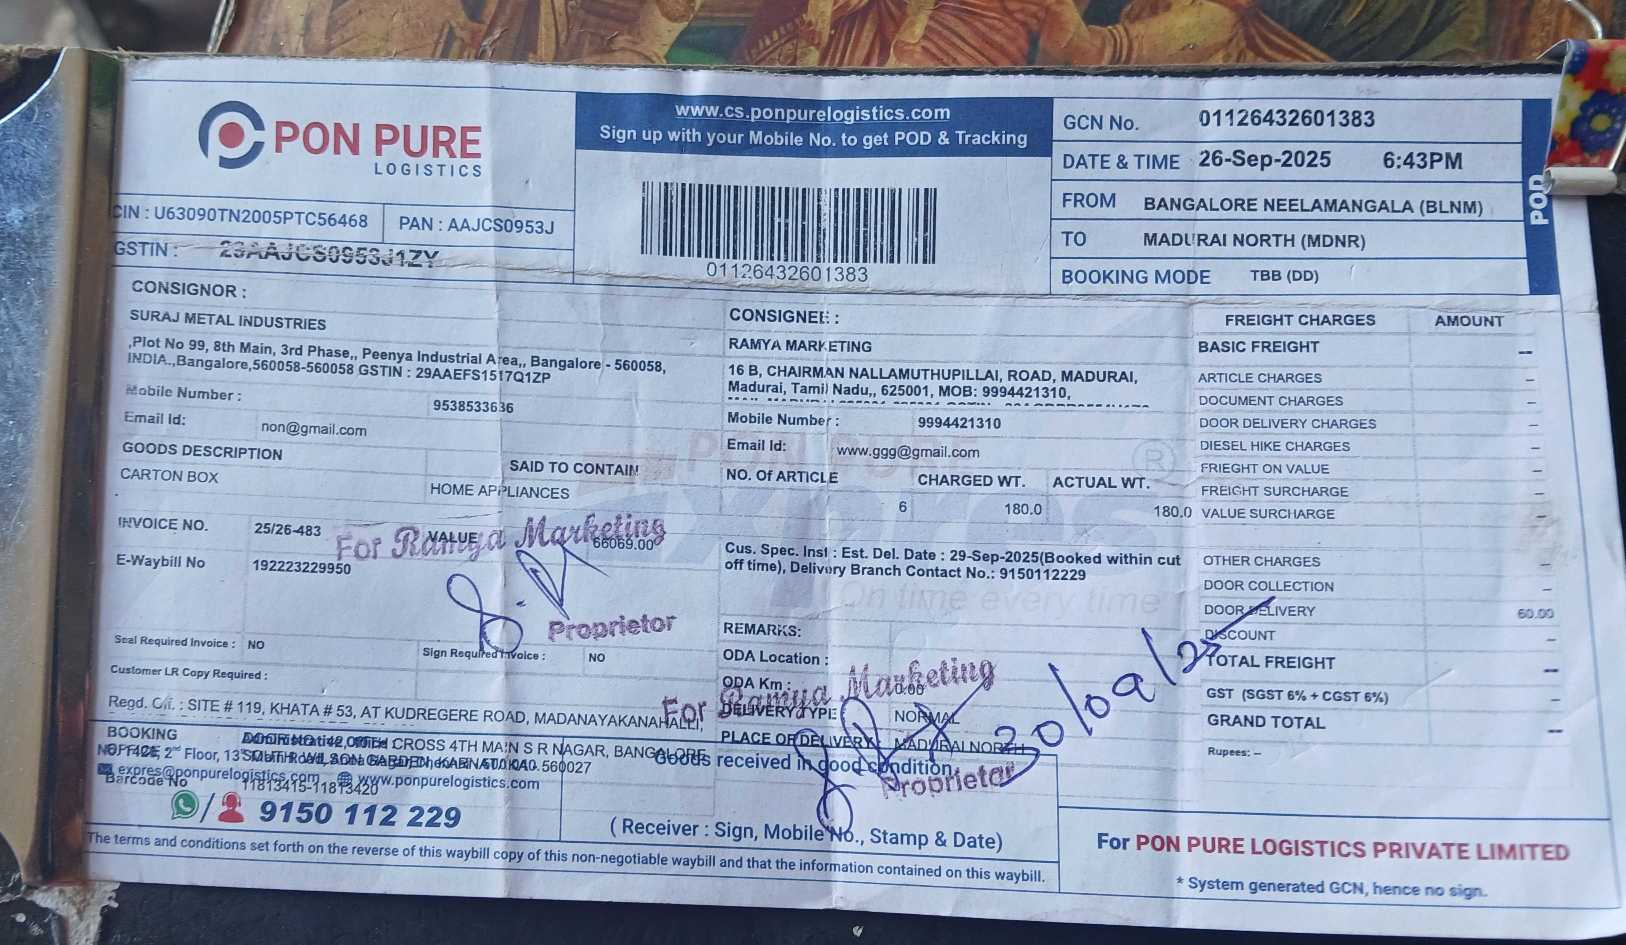 PON PURE
LOGISTICS
www.cs.ponpurelogistics.com
Sign up with your Mobile No. to get POD & Tracking
01126432601383
GCN No. 01126432601383
DATE & TIME 26-Sep-2025 6:43PM
FROM BANGALORE NEELAMANGALA (BLNM)
TO MADURAI NORTH (MDNR)
BOOKING MODE TBB (DD)
POD
CIN : U63090TN2005PTC56468 PAN : AAJCS0953J
GSTIN : 29AAJCS0953J1ZY
CONSIGNOR :
SURAJ METAL INDUSTRIES
,Plot No 99, 8th Main, 3rd Phase,, Peenya Industrial Area,, Bangalore - 560058,
INDIA.,Bangalore,560058-560058 GSTIN : 29AAEFS1517Q1ZP
Mobile Number : 9538533636
Email Id: non@gmail.com
CONSIGNEE :
RAMYA MARKETING
16 B, CHAIRMAN NALLAMUTHUPILLAI, ROAD, MADURAI,
Madurai, Tamil Nadu,, 625001, MOB: 9994421310,
Mobile Number : 9994421310
Email Id: www.ggg@gmail.com
GOODS DESCRIPTION SAID TO CONTAIN
CARTON BOX HOME APPLIANCES
NO. Of ARTICLE CHARGED WT. ACTUAL WT.
6 180.0 180.0
INVOICE NO. 25/26-483 VALUE 66069.00
E-Waybill No 192223229950
For Ramya Marketing
Proprietor
Cus. Spec. Inst : Est. Del. Date : 29-Sep-2025(Booked within cut
off time), Delivery Branch Contact No.: 9150112229
On time every time
Seal Required Invoice : NO Sign Required Invoice : NO
Customer LR Copy Required :
REMARKS:
ODA Location :
ODA Km : 0.00
DELIVERY TYPE NORMAL
PLACE OF DELIVERY MADURAI NORTH
For Ramya Marketing
Proprietor
30/09/25
FREIGHT CHARGES AMOUNT
BASIC FREIGHT --
ARTICLE CHARGES --
DOCUMENT CHARGES --
DOOR DELIVERY CHARGES --
DIESEL HIKE CHARGES --
FRIEGHT ON VALUE --
FREIGHT SURCHARGE --
VALUE SURCHARGE --
OTHER CHARGES --
DOOR COLLECTION --
DOOR DELIVERY 60.00
DISCOUNT --
TOTAL FREIGHT --
GST (SGST 6% + CGST 6%) --
GRAND TOTAL --
Rupees: –
Regd. Off. : SITE # 119, KHATA # 53, AT KUDREGERE ROAD, MADANAYAKANAHALLI,
BOOKING
OFFICE
Barcode No 11813415-11813420
expres@ponpurelogistics.com www.ponpurelogistics.com
9150 112 229
Goods received in good condition
( Receiver : Sign, Mobile No., Stamp & Date)
The terms and conditions set forth on the reverse of this waybill copy of this non-negotiable waybill and that the information contained on this waybill.
For PON PURE LOGISTICS PRIVATE LIMITED
* System generated GCN, hence no sign.